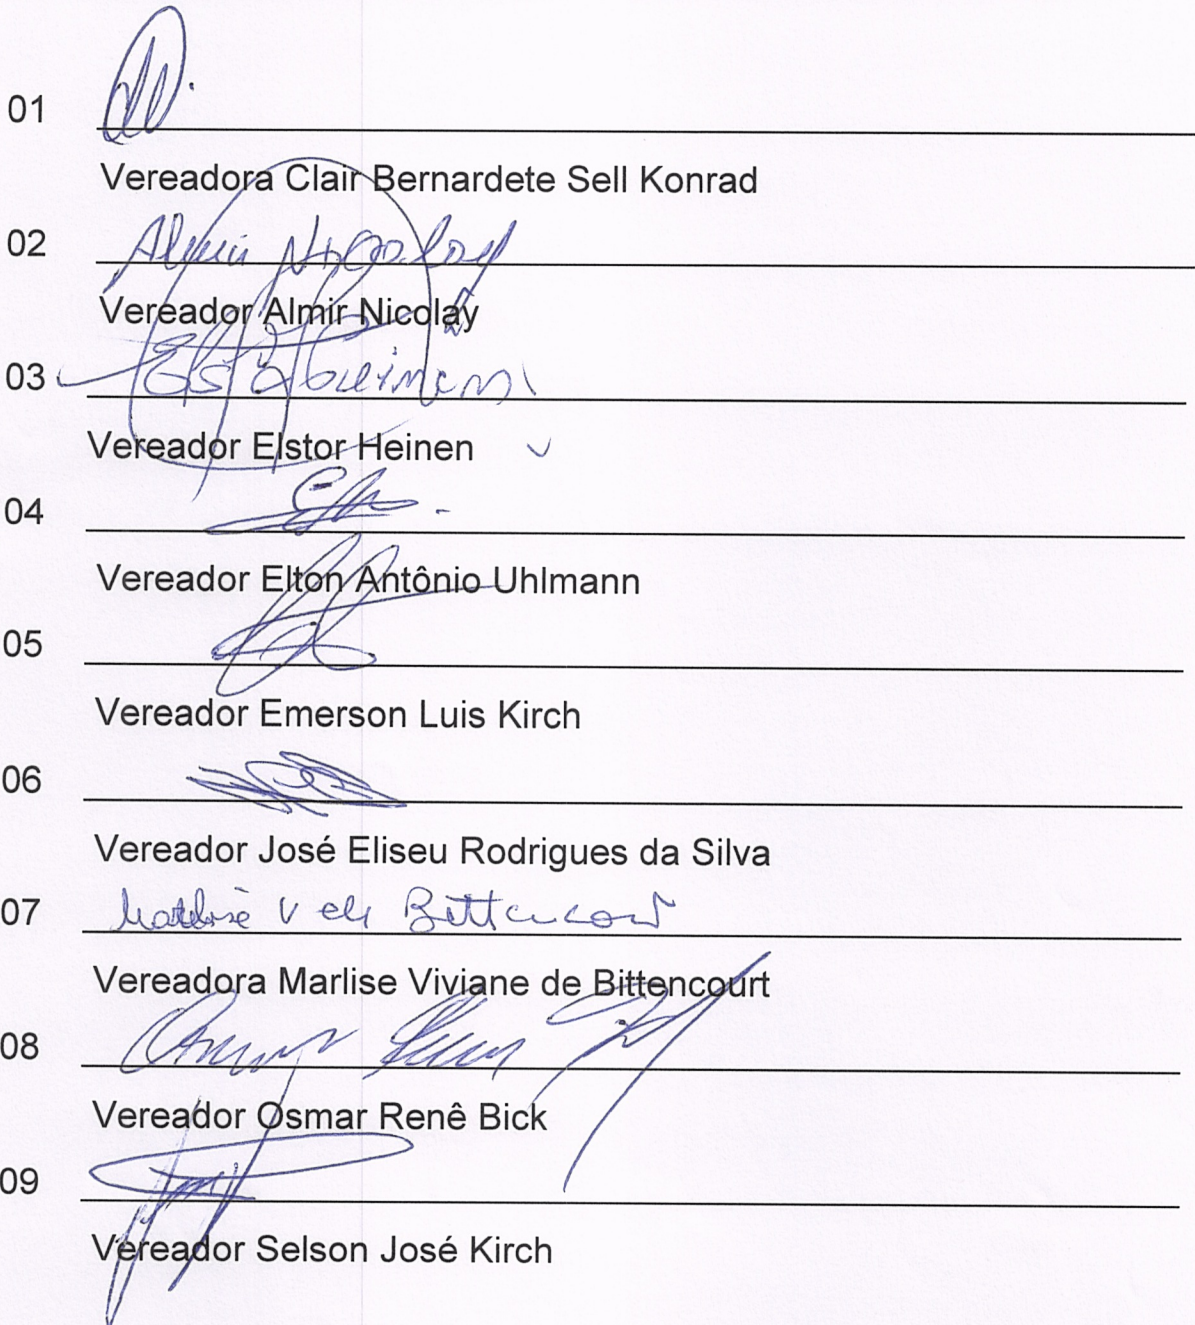 01
Vereadora Clair Bernardete Sell Konrad
02 Almir Nicolay
Vereador Almir Nicolay
03
Vereador Elstor Heinen
04
Vereador Elton Antônio Uhlmann
05
Vereador Emerson Luis Kirch
06
Vereador José Eliseu Rodrigues da Silva
07 Marlise V de Bittencourt
Vereadora Marlise Viviane de Bittencourt
08
Vereador Osmar Renê Bick
09
Vereador Selson José Kirch